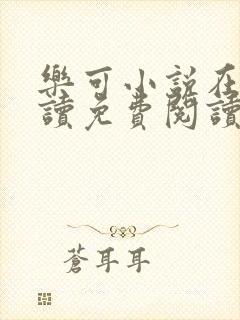 樂可小說在
讀免費閱讀
蒼耳耳